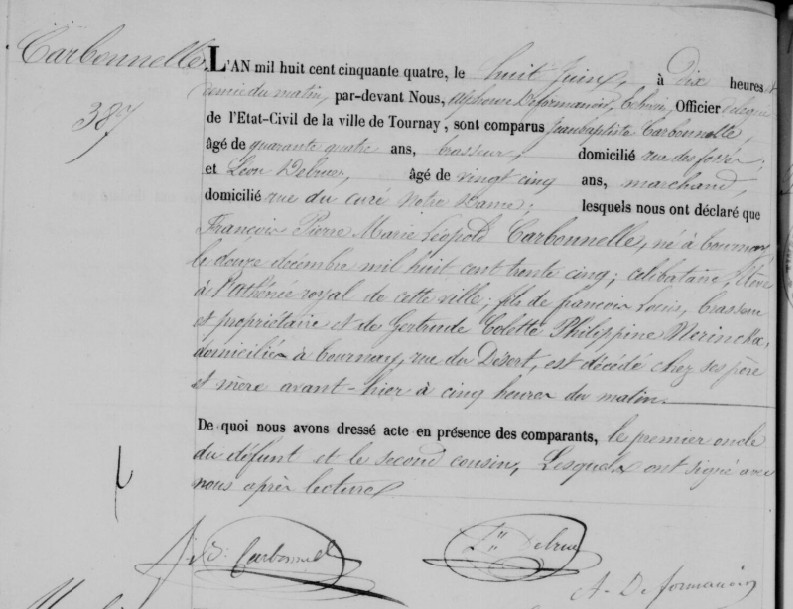 Carbonnelle
387
L'AN mil huit cent cinquante quatre, le huit Juin, à Dix heures et
demie du matin, par-devant Nous, Alphonse Deformanoir, Echevin, Officier délégué
de l'Etat-Civil de la ville de Tournay, sont comparus Jeanbaptiste Carbonnelle,
âgé de quarante quatre ans, brasseur, domicilié rue des fossés;
et Léon Debrue, âgé de vingt cinq ans, marchand,
domicilié rue du curé Notre Dame; lesquels nous ont déclaré que
François Pierre Marie Léopold Carbonnelle, né à tournay
le douze décembre mil huit cent trente cinq; célibataire, Elève
à l'athénée royal de cette ville; fils de françois Louis, brasseur
et propriétaire et de Gertrude Colette Philippine Merinckx,
domiciliés à tournay, rue du Désert, est décédé chez ses père
et mère avant-hier à cinq heures du matin.
De quoi nous avons dressé acte en présence des comparants, le premier oncle
du défunt et le second cousin, Lesquels ont signé avec
nous après lecture
J.B. Carbonnel
Ln Debrue
A. Deformanoir